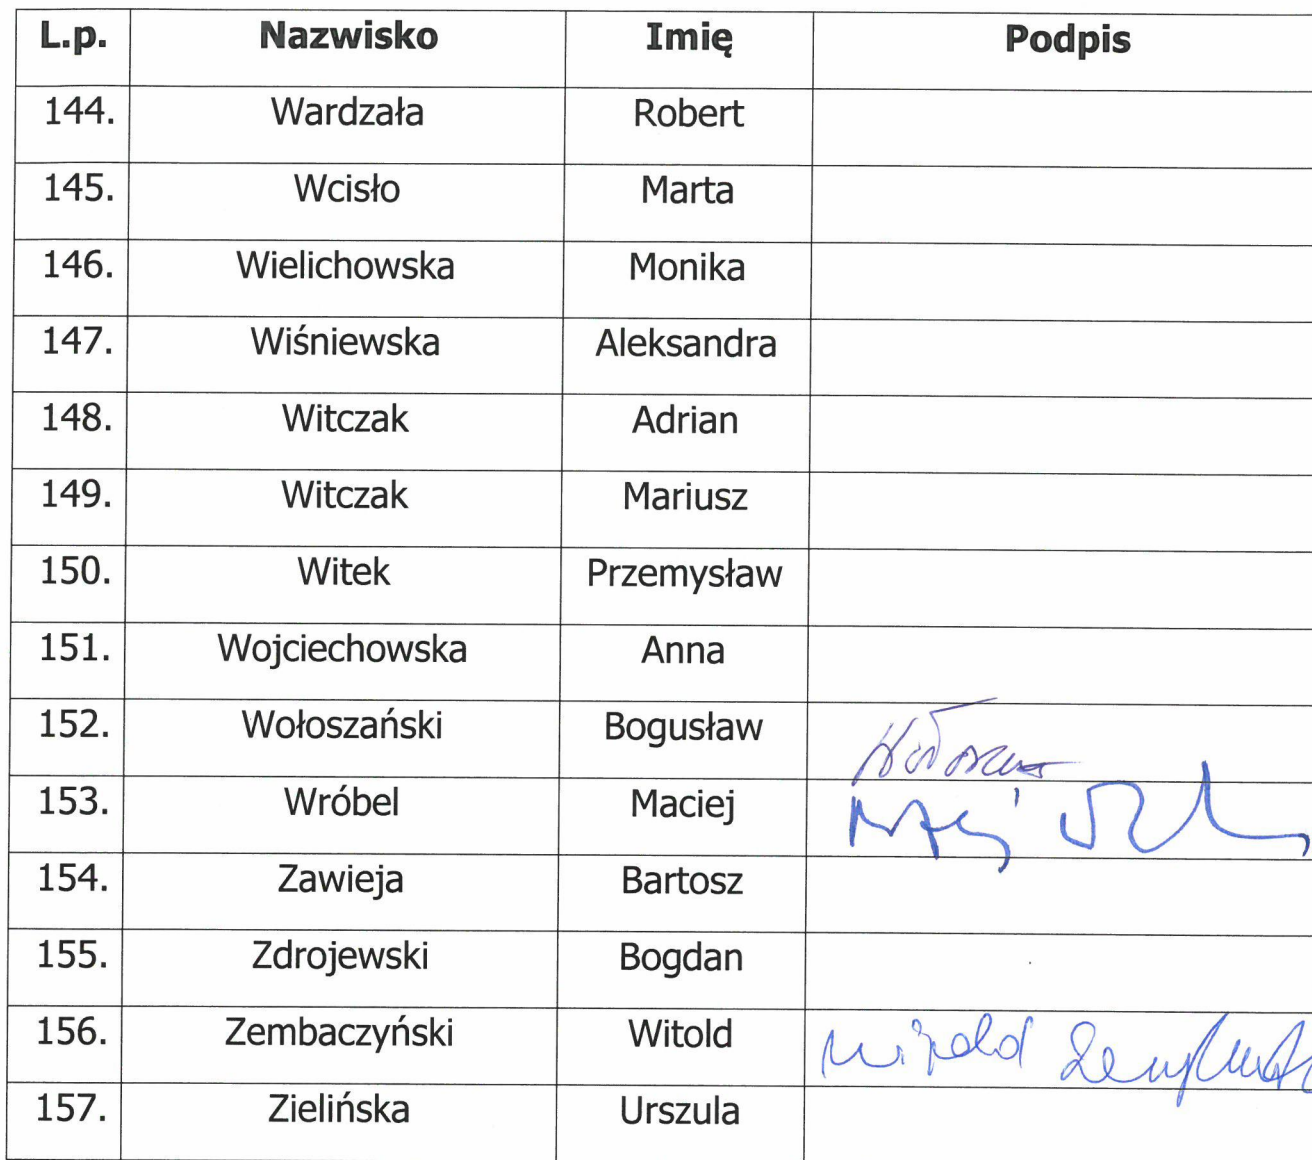 L.p. Nazwisko Imię Podpis
144. Wardzała Robert
145. Wcisło Marta
146. Wielichowska Monika
147. Wiśniewska Aleksandra
148. Witczak Adrian
149. Witczak Mariusz
150. Witek Przemysław
151. Wojciechowska Anna
152. Wołoszański Bogusław
153. Wróbel Maciej
154. Zawieja Bartosz
155. Zdrojewski Bogdan
156. Zembaczyński Witold Witold
157. Zielińska Urszula